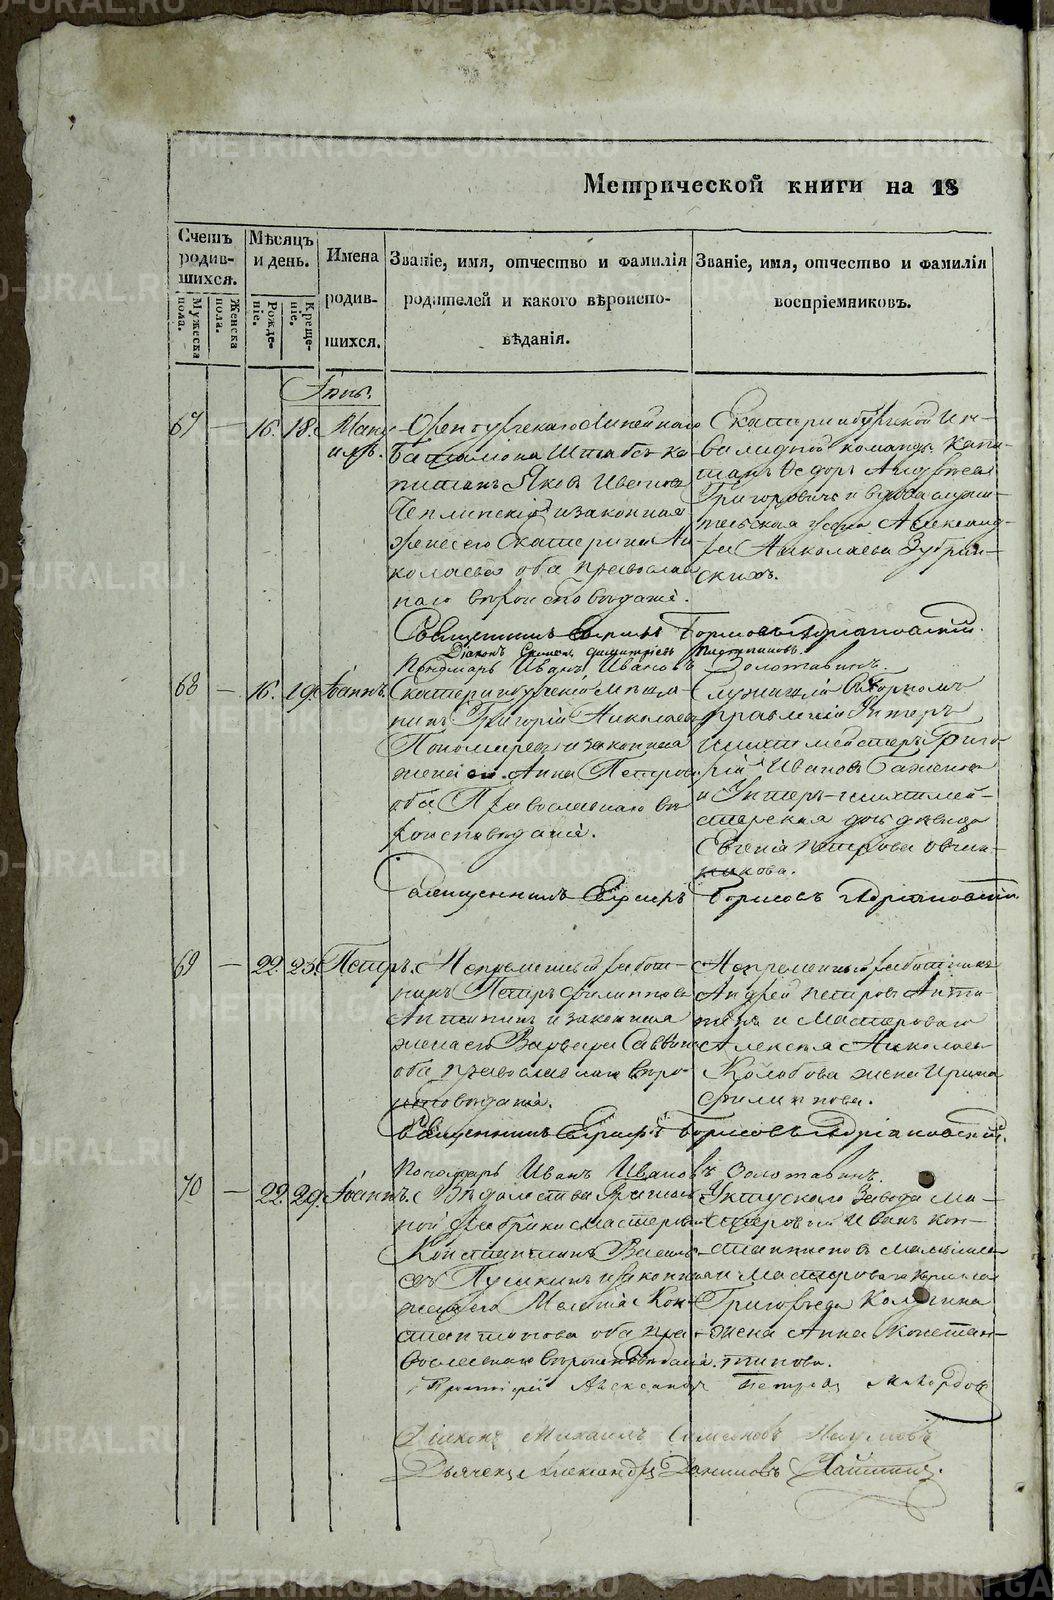 METRIKI.GASO-URAL.RU
Метрической книги на 18
Счетъ родив-шихся.
Мужеска пола.
Женска пола.
Мѣсяцъ и день.
Рожде-ніе.
Креще-ніе.
Имена родив-шихся.
Званіе, имя, отчество и фамилія
родителей и какого вѣроиспо-
вѣданія.
Званіе, имя, отчество и фамилія
воспріемниковъ.
67 — 16. 18.
Оренбургскаго Линейнаго
Баталіона Штабсъ Ка-
питанъ Яковъ Ивановъ
и законная
жена его Екатерина Ни-
колаева оба православ-
наго вѣроисповѣданія.
Екатеринбургской Ин-
валидной команды Капи-
танъ Ѳедоръ Андреевъ
Григоровичъ и
Александ-
ра Николаева
скихъ.
Священникъ Борисовъ Адріановскій.
Діаконъ Симеонъ Димитріевъ Плотниковъ.
Пономарь Иванъ Ивановъ Золотавинъ.
68 — 16. 19. Іоаннъ.
Екатеринбургскій Мѣща-
нинъ Григорій Николаевъ
Пономаревъ и законная
жена его Анна Петрова
оба Православнаго вѣ-
роисповѣданія.
Служащій въ Горномъ
Правленіи Унтеръ
Шихтмейстеръ Григо-
рій Ивановъ Баженовъ
и Унтеръ-шихтмей-
стерская дочь дѣвица
Евгенія Петрова Овчин-
никова.
Священникъ Борисовъ Адріановскій
69 — 22. 25. Петръ.
Непременный работ-
никъ Петръ Филипповъ
Антипинъ и законная
жена его Варвара Саввина
оба православнаго вѣро-
исповѣданія.
Непременный работникъ
Андрей Петровъ Анти-
пинъ и Мастероваго
Алексѣя Николаева
Колобова жена Ирина
Филиппова.
Священникъ Борисовъ Адріановскій.
Пономарь Иванъ Ивановъ Золотавинъ.
70 — 22. 29. Іоаннъ.
Вѣдомства Граниль-
ной фабрики мастеровой
Константинъ Василь-
евъ Пушкинъ и законная
жена его Меланія Кон-
стантинова оба пра-
вославнаго вѣроисповѣданія.
Уктусскаго Завода Ма-
стеровой Иванъ Кон-
стантиновъ
и Мастероваго
Григорьева Калугина
жена Анна Констан-
тинова.
Протоіерей Александръ Петровъ
Діаконъ Михаилъ Симеоновъ Наумовъ
Дьячекъ Александръ Даниловъ